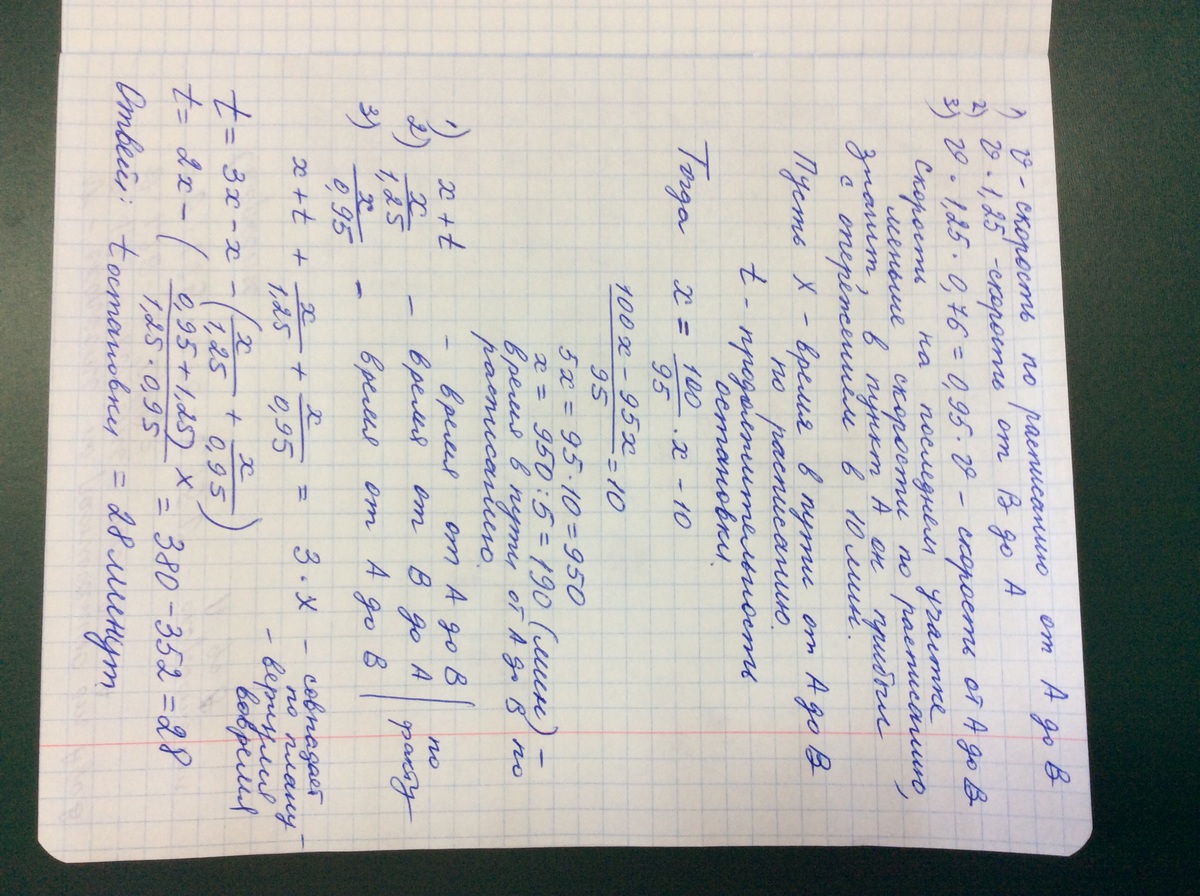 1) v – скорость по расписанию от А до В
2) v · 1,25 – скорость от В до А
3) v · 1,25 · 0,76 = 0,95 · v – скорость от А до В
скорость на последнем участке
меньше скорости по расписанию,
значит, в пункт А он прибыл
с опережением в 10 мин.
Пусть x – время в пути от А до В
по расписанию.
t – продолжительность
остановки.
Тогда x = 100/95 · x – 10
(100x – 95x)/95 = 10
5x = 95 · 10 = 950
x = 950 : 5 = 190 (мин) –
время в пути от А до В по
расписанию.
1) x + t – время от А до В | по
2) x/1,25 – время от В до А | факту
3) x/0,95 – время от А до В |
x + t + x/1,25 + x/0,95 = 3 · x – совпадает
по плану –
– вернулся
вовремя
t = 3x – x – (x/1,25 + x/0,95)
t = 2x – ((0,95 + 1,25)x/(1,25 · 0,95) = 380 – 352 = 28
Ответ: t остановки = 28 минут.